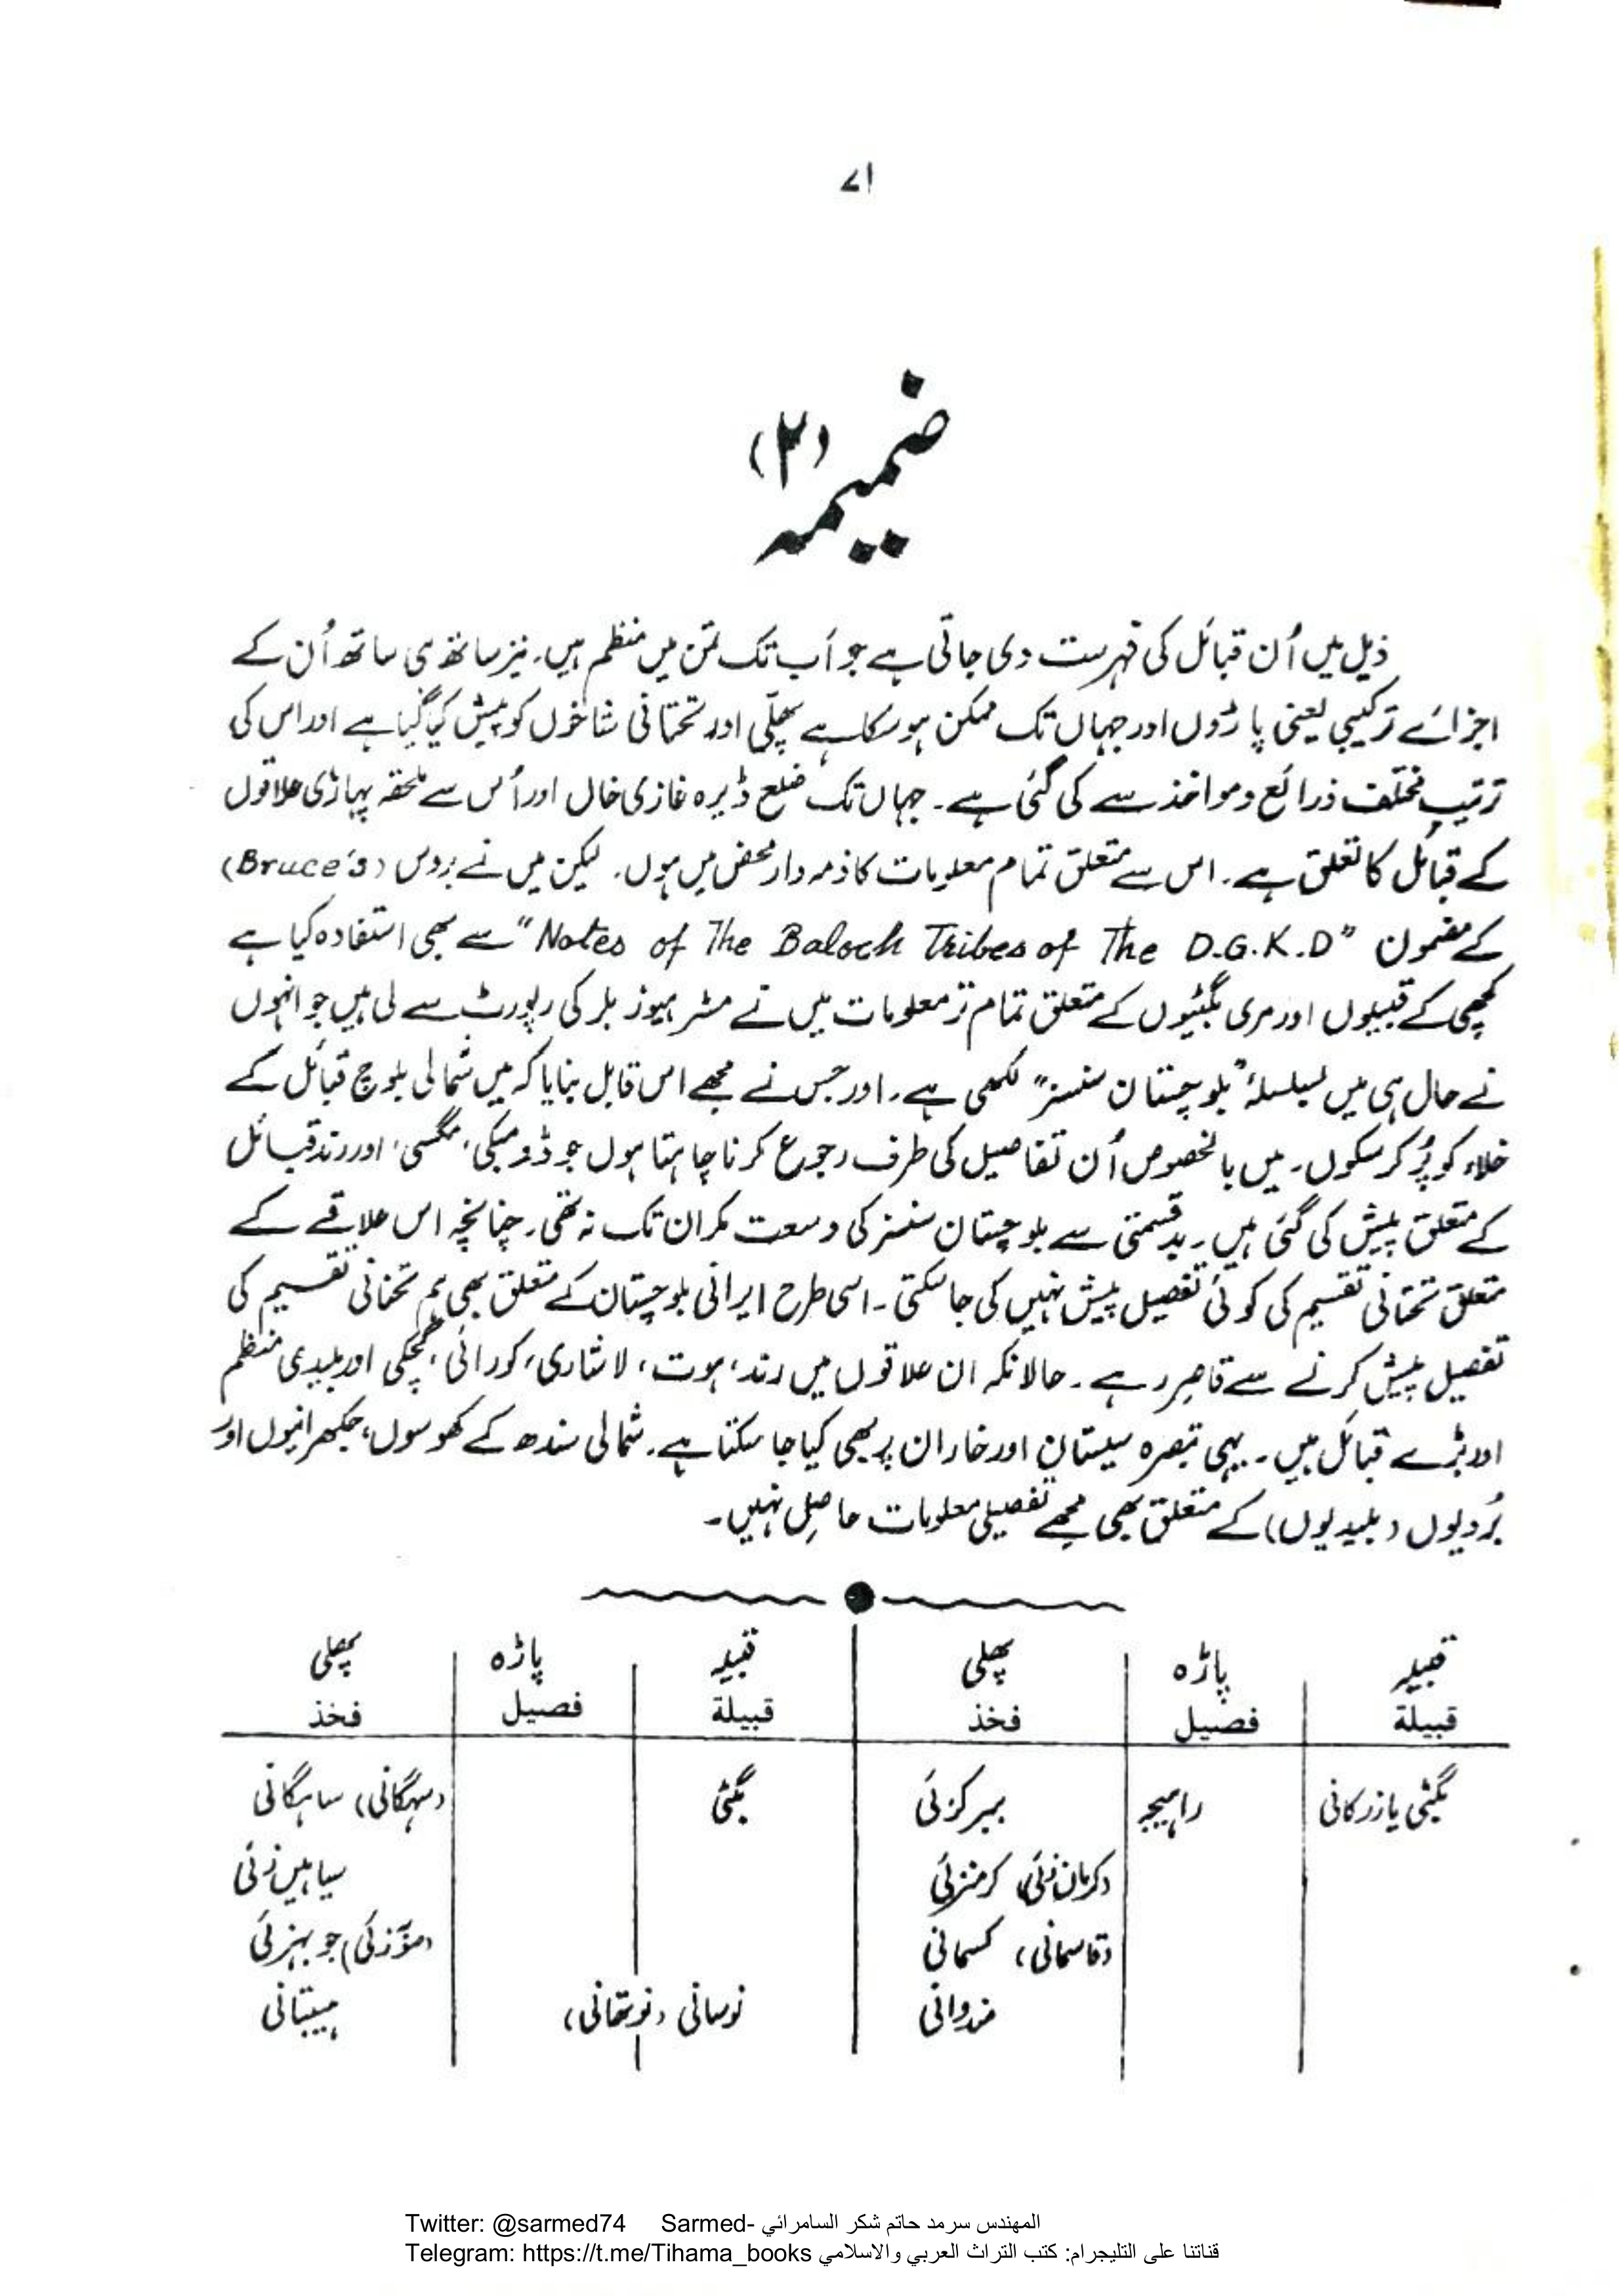 ۷۱
ضمیمہ (۲)
ذیل میں اُن قبائل کی فہرست دی جاتی ہے جو اَب تک تمن میں منظم ہیں۔ نیز ساتھ ہی ساتھ اُن کے
اجزائے ترکیبی یعنی پاڑوں اور جہاں تک ممکن ہو سکا ہے پھلّی اور تحتانی شاخوں کو پیش کیا گیا ہے اور اس کی
ترتیب مختلف ذرائع و مواخذ سے کی گئی ہے۔ جہاں تک ضلع ڈیرہ غازی خان اور اُس سے ملحقہ پہاڑی علاقوں
کے قبائل کا تعلق ہے۔ اس سے متعلق تمام معلومات کا ذمہ دار محض میں ہوں۔ لیکن میں نے بروس (Bruce's)
کے مضمون "Notes of The Baloch Tribes of The D.G.K.D" سے بھی استفادہ کیا ہے
کچھی کے قبیلوں اور مری بگٹیوں کے متعلق تمام تر معلومات میں نے مسٹر ہیوز بلر کی رپورٹ سے لی ہیں جو انہوں
نے حال ہی میں بسلسلۂ "بلوچستان سنسز" لکھی ہے۔ اور جس نے مجھے اس قابل بنایا کہ میں شمالی بلوچ قبائل کے
خلاء کو پُر کر سکوں۔ میں بالخصوص اُن تفاصیل کی طرف رجوع کرنا چاہتا ہوں جو ڈومبکی، مگسی، اور رند قبائل
کے متعلق پیش کی گئی ہیں۔ بدقسمتی سے بلوچستان سنسز کی وسعت مکران تک نہ تھی۔ چنانچہ اس علاقے کے
متعلق تحتانی تقسیم کی کوئی تفصیل پیش نہیں کی جا سکتی۔ اسی طرح ایرانی بلوچستان کے متعلق بھی ہم تحتانی تقسیم کی
تفصیل پیش کرنے سے قاصر رہے۔ حالانکہ ان علاقوں میں رند، ہوت، لاشاری، کورائی، گچکی اور بلیدی منظم
اور بڑے قبائل ہیں۔ یہی تبصرہ سیستان اور خاران پر بھی کیا جا سکتا ہے۔ شمالی سندھ کے کھوسوں، جکھرانیوں اور
بُردیوں (بلیدیوں) کے متعلق بھی مجھے تفصیلی معلومات حاصل نہیں۔
قبیلہ پاڑہ پھلی قبیلہ پاڑہ پھلی
قبيلة فصيل فخذ قبيلة فصيل فخذ
بگٹی یا زرکانی راہیجہ بیبرکزئی بگٹی (سہگانی) ساہگانی
(کرمان زئی) کرمنزئی سیاہین زئی
(قاسمانی) کسمانی جوبہنزئی
مندوانی نوسانی (نوتھانی) ہیبتانی
Twitter: @sarmed74 Sarmed- المهندس سرمد حاتم شكر السامرائي
Telegram: https://t.me/Tihama_books قناتنا على التليجرام: كتب التراث العربي والاسلامي